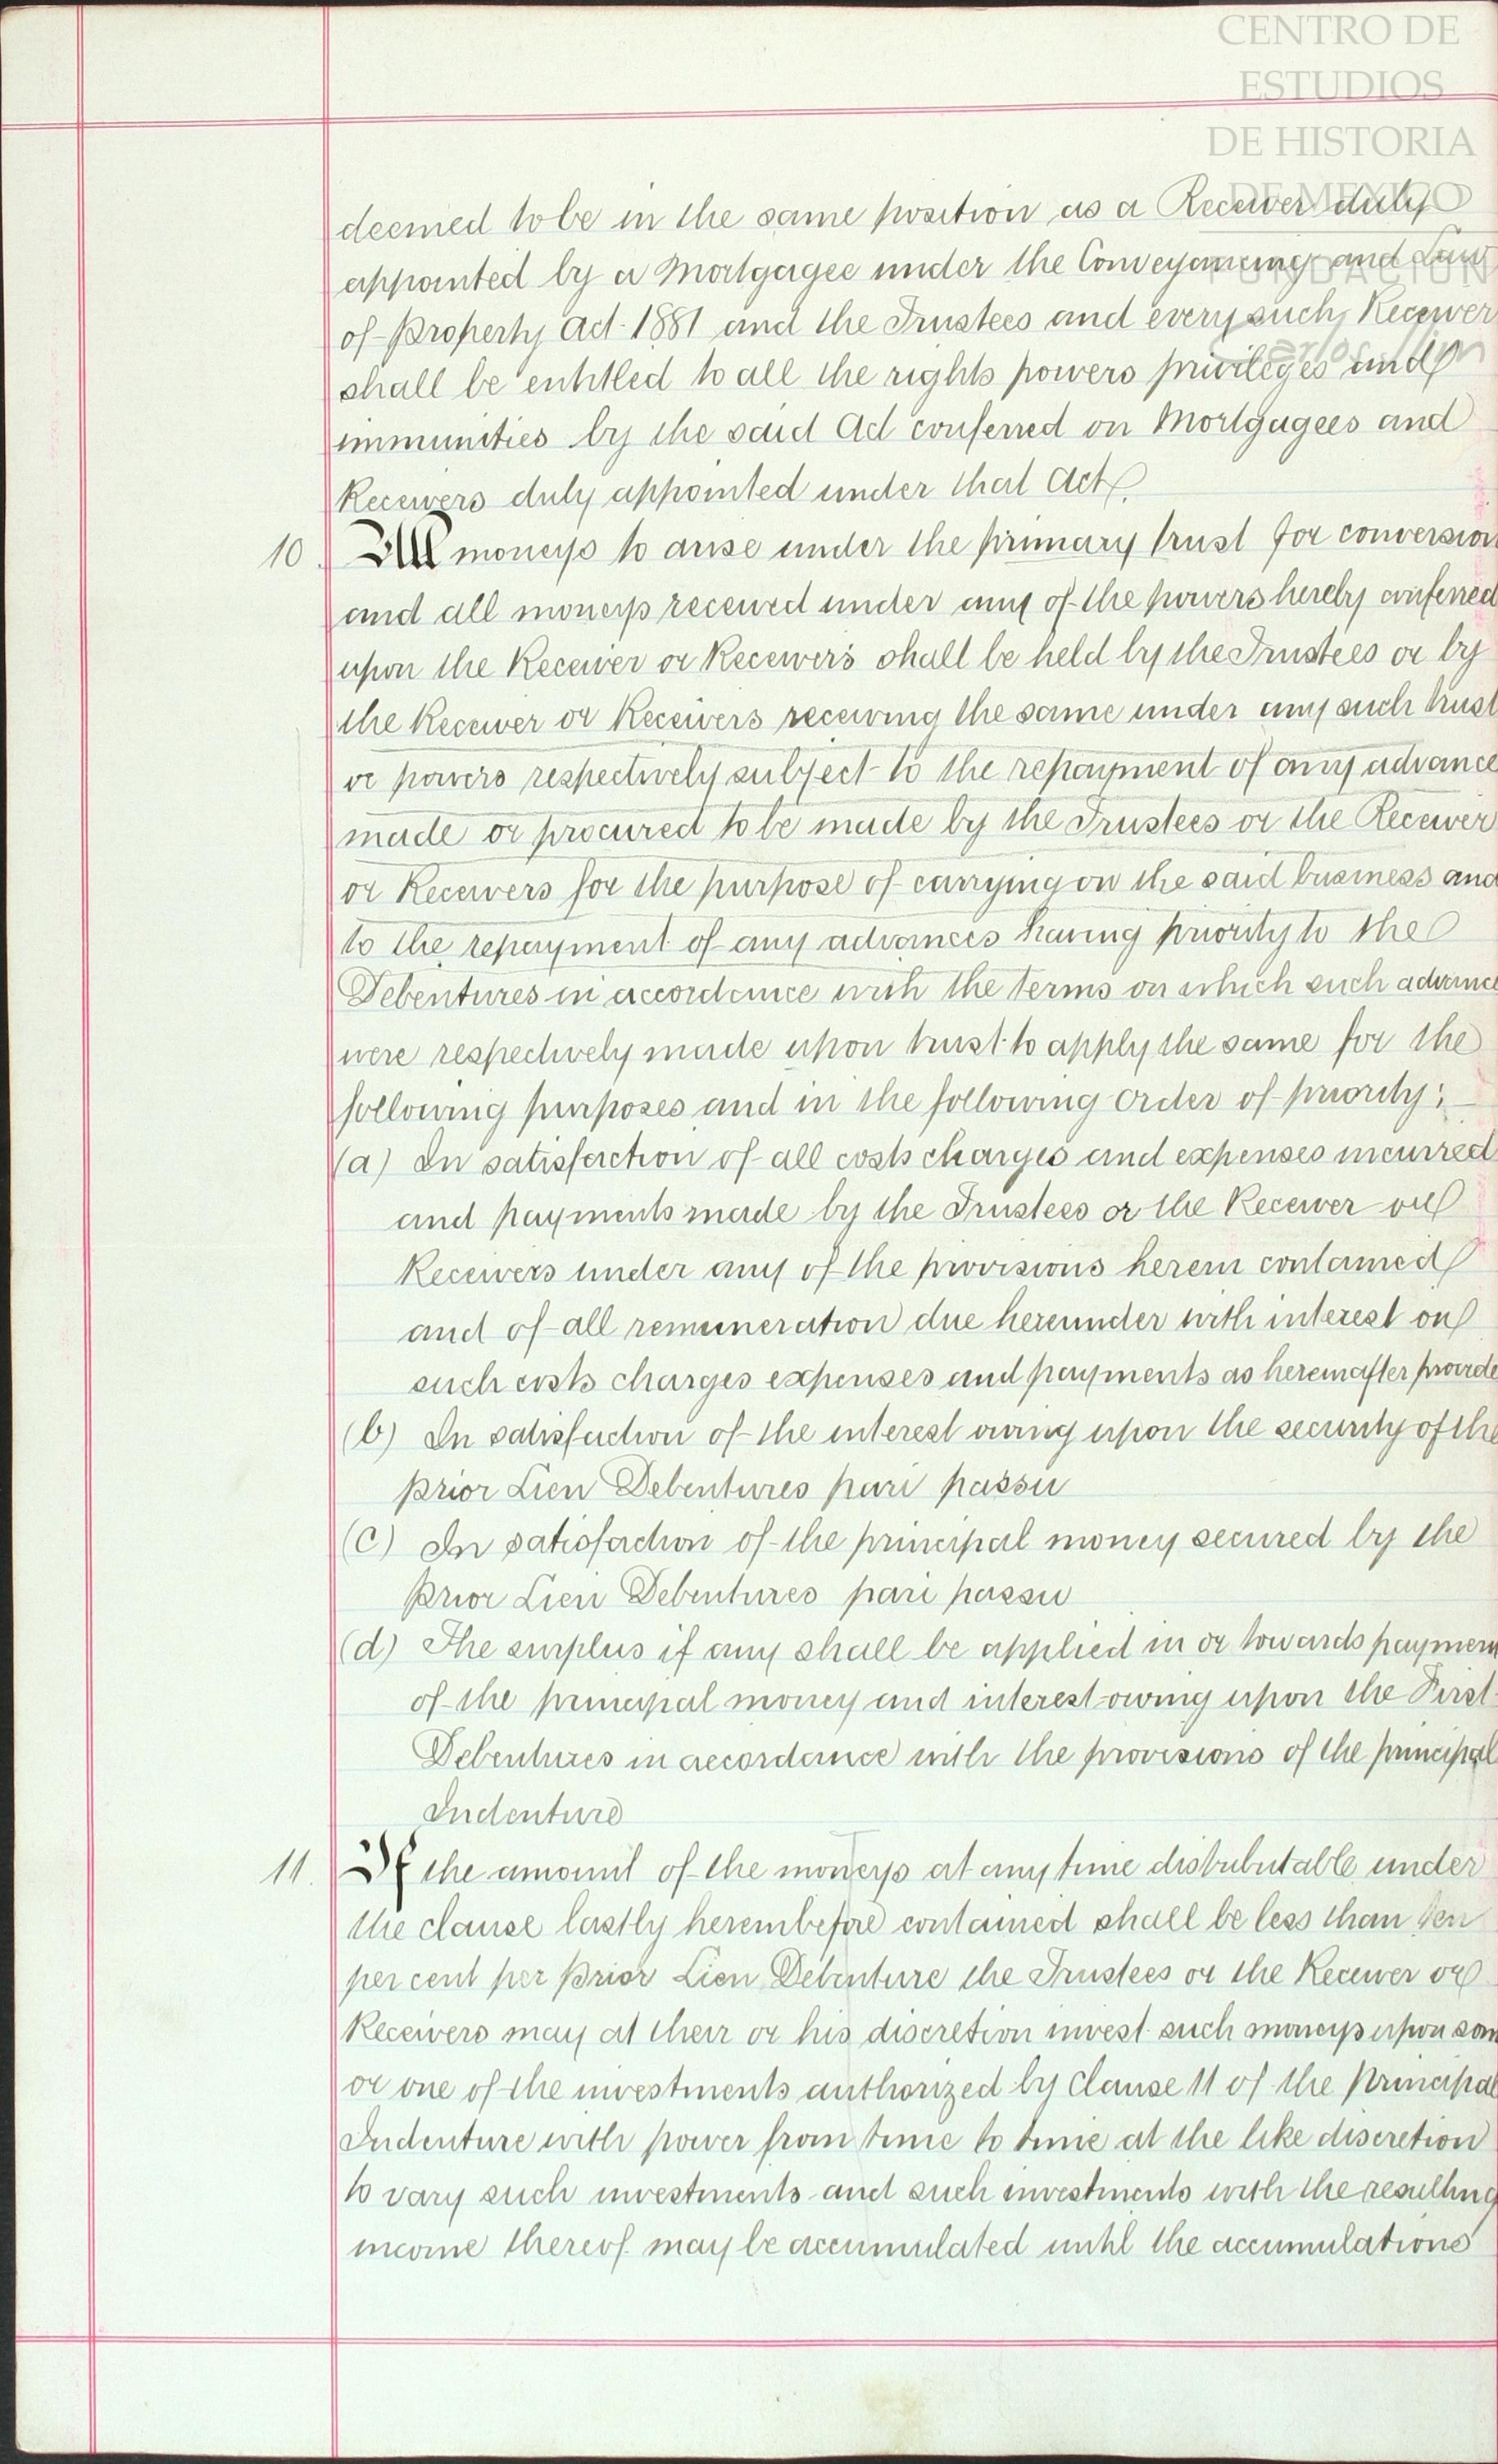 CENTRO DE
ESTUDIOS
DE HISTORIA
DE MEXICO
FUNDACION
Carlos Slim
deemed to be in the same position as a Receiver duly
appointed by a Mortgagee under the Conveyancing and Law
of Property Act 1881 and the Trustees and every such Receiver
shall be entitled to all the rights powers privileges and
immunities by the said Act conferred on Mortgagees and
Receivers duly appointed under that Act.
10. All moneys to arise under the primary trust for conversion
and all moneys received under any of the powers hereby conferred
upon the Receiver or Receivers shall be held by the Trustees or by
the Receiver or Receivers receiving the same under any such trust
or powers respectively subject to the repayment of any advance
made or procured to be made by the Trustees or the Receiver
or Receivers for the purpose of carrying on the said business and
to the repayment of any advances having priority to the
Debentures in accordance with the terms on which such advance
were respectively made upon trust to apply the same for the
following purposes and in the following order of priority:—
(a) In satisfaction of all costs charges and expenses incurred
and payments made by the Trustees or the Receiver or
Receivers under any of the provisions herein contained
and of all remuneration due hereunder with interest on
such costs charges expenses and payments as hereinafter provide
(b) In satisfaction of the interest owing upon the security of the
Prior Lien Debentures pari passu
(c) In satisfaction of the principal money secured by the
Prior Lien Debentures pari passu
(d) The surplus if any shall be applied in or towards paymen
of the principal money and interest owing upon the First
Debentures in accordance with the provisions of the principal
Indenture
11. If the amount of the moneys at any time distributable under
the clause lastly hereinbefore contained shall be less than ten
per cent per Prior Lien Debenture the Trustees or the Receiver or
Receivers may at their or his discretion invest such moneys upon som
or one of the investments authorized by clause 11 of the Principal
Indenture with power from time to time at the like discretion
to vary such investments and such investments with the resulting
income thereof may be accumulated until the accumulations